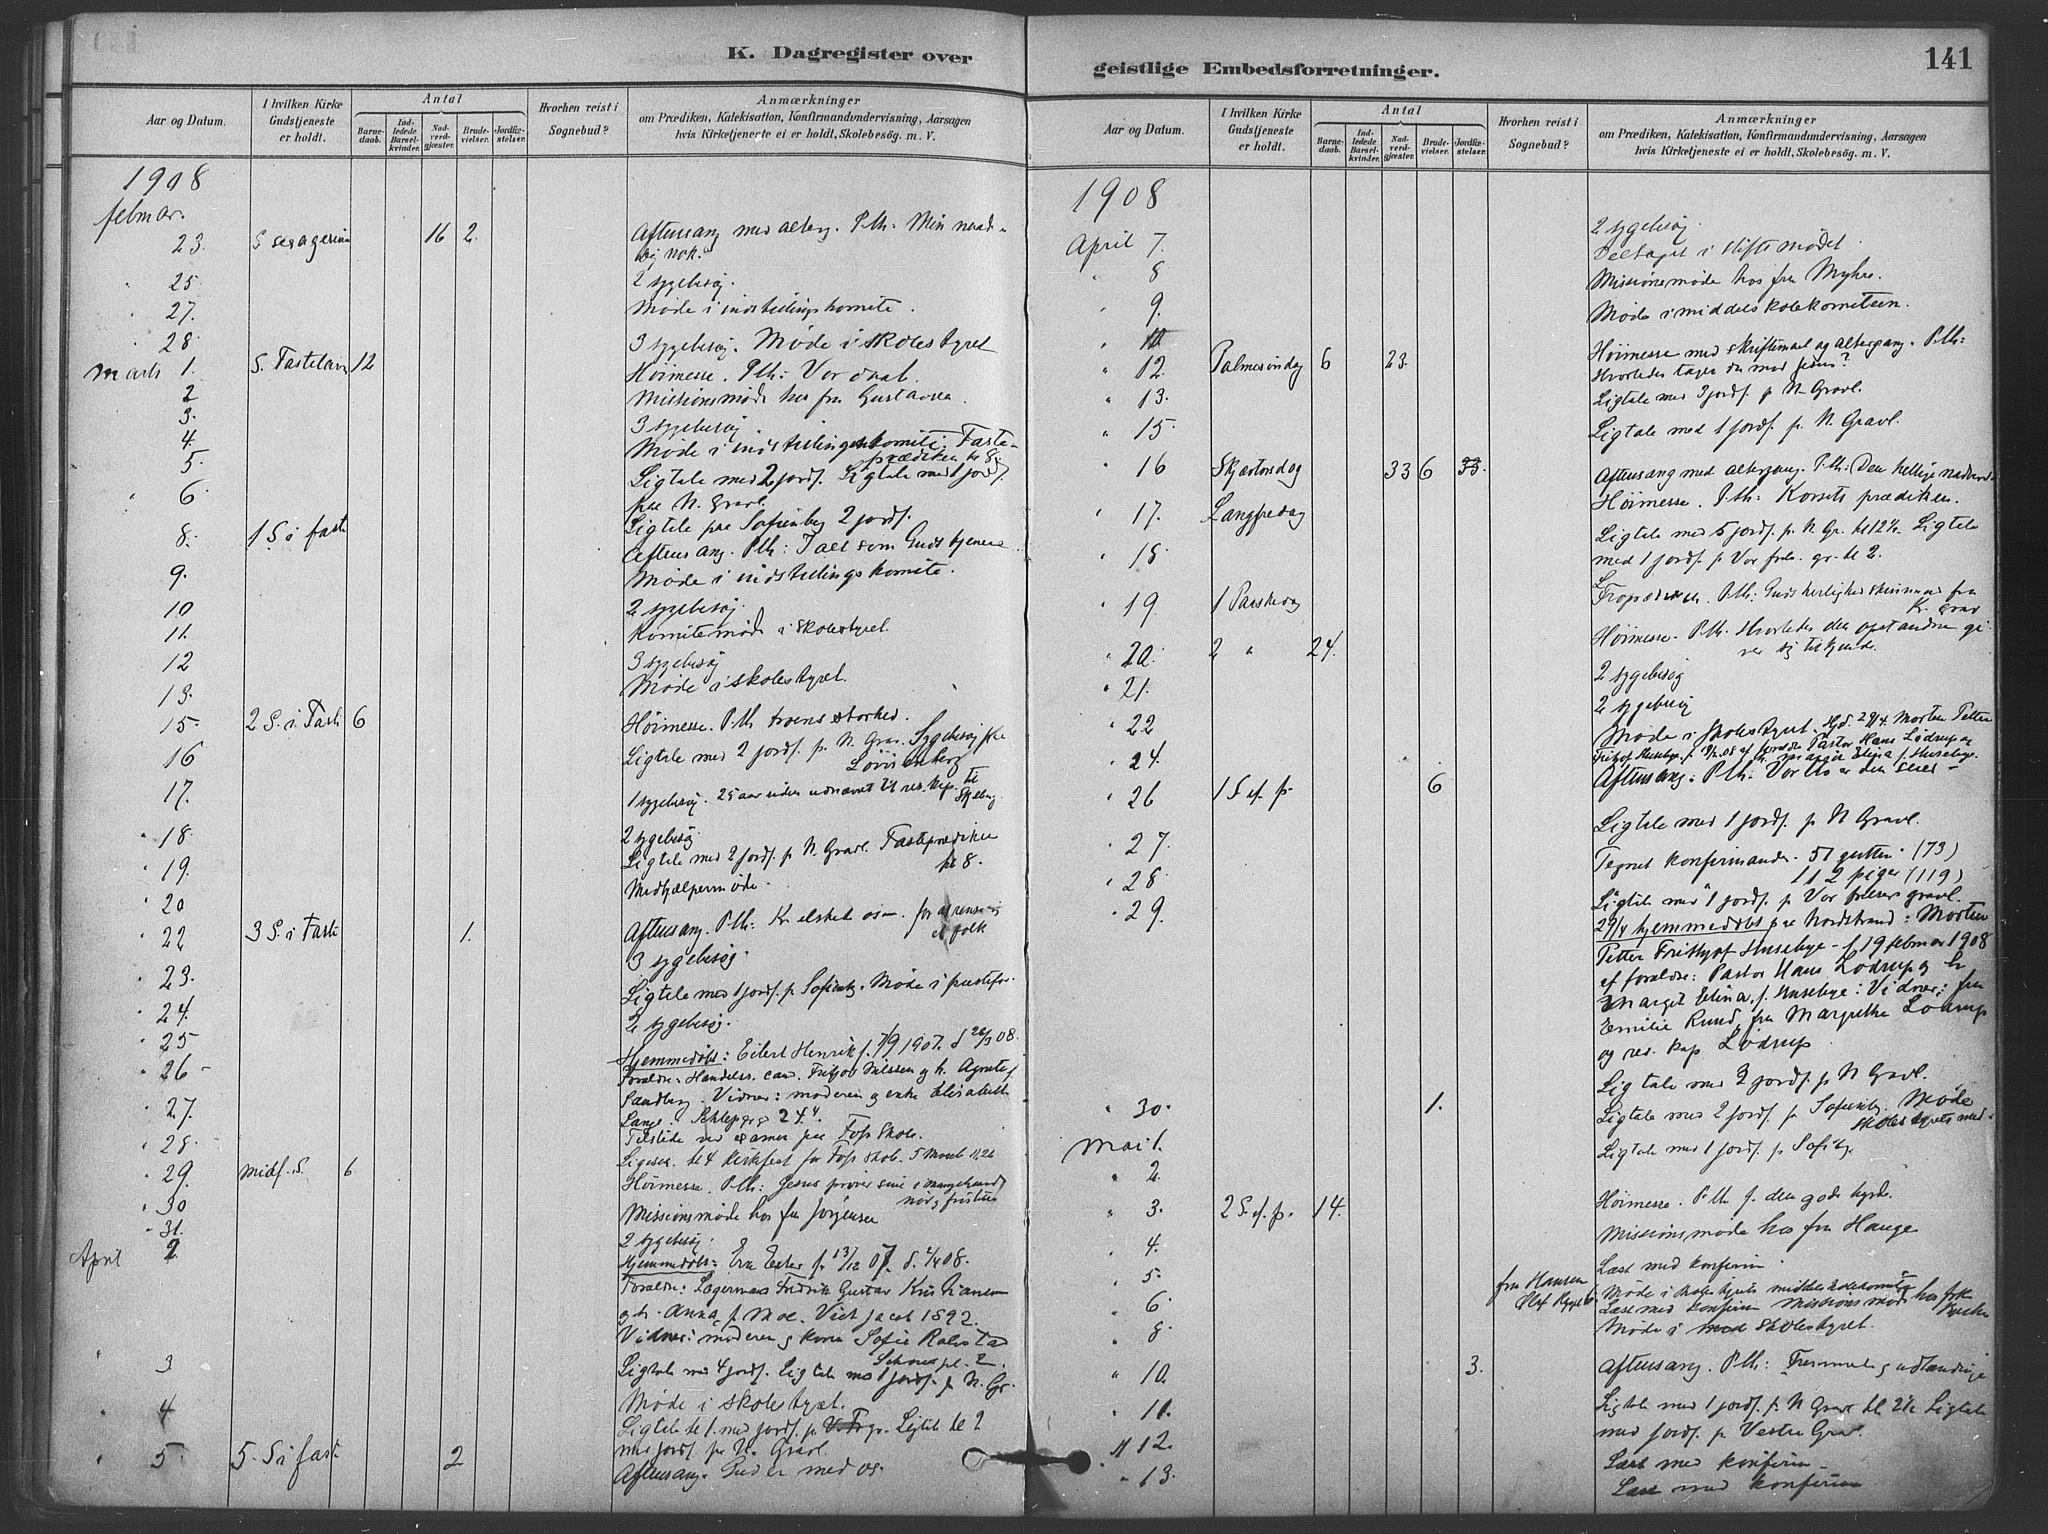 K. Dagregister over
Aar og Datum.
I hvilken Kirke Gudstjeneste er holdt.
Antal
Barnedaab.
Indledede Barselkvinder.
Nadverdgjæster.
Brudevielser.
Jordfæstelser.
Hvorhen reist i Sognebud?
Anmærkninger
om Prædiken, Katekisation, Konfirmandundervisning, Aarsagen
hvis Kirketjeneste ei er holdt, Skolebesög. m. V.
1908
februar.
23. S sexagesima 16 2. Aftensang med alterg. P. th: Min naade
dig nok.
25. 2 sygebesög.
27. Møde i indstillingskomite.
28. 3 sygebesög. Møde i skolestyret
Marts 1. S. Fastelavn 12 Høimesse. P. th: Vor daab.
2 Missionsmøde hos fru Gustavsen.
3. 3 sygebesög.
4. Møde i indstillingskomite. Faste-
prædiken kl 8.
5. Ligtale med 2 jordf. Ligtale med 1 jordf.
paa N. Gravl.
6. Ligtale paa Sofienberg 2 jordf.
8. 1 S i faste Aftensang. P. th: Talt som Guds tjenere
9. Møde i indstillingskomite.
10 2 sygebesög.
11. Komitemøde i skolestyret.
12 3 sygebesög
13. Møde i skolestyret.
15. 2 S. i Faste 6 Høimesse. P. th troens storhed.
16 Ligtale med 2 jordf. p. N. Grav. Sygebesög paa
Lovisenberg
17. 1 sygebesög. 25 aar siden udnævnt til res. kap. til
Skjeberg.
18 2 sygebesög
19. Ligtale med 2 jordf. p N. Gravl. Fasteprædiken
kl 8.
20 Medhjælpermøde.
22 3 S. i Faste 1. Aftensang. P. th: Kr elsked os for at rense sig
et folk
23. 3 sygebesög.
24. Ligtale med 1 jordf. p. Sofienbg. Møde i præstefor.
25 2 sygebesög.
26 Hjemmedøbt: Eilert Henrik f. 7/9 1907. d 26/3 08.
Foræld: Handelsr. cand. Fritjof Nilssen og h. Agnete f
Sandberg. Vidner: moderen og enke Elisabeth
Lange. 24.
27. Tilstede ved examen paa Foss Skole.
28. kl 4 Kirkefest for Foss skole.
29. Midf. S. 6 Høimesse. P. th: Jesus prøver sine i mangehaande
nød og fristelse
30 Missionsmøde hos fru Jørgensen
31. 2 sygebesög.
April 2. Hjemmedøbt: Eva Ester f. 13/12 07. d. 2/4 08.
Foræld: Lagermand Fredrik Gustav Kristiansen
og h. Anna f. Moe. Viet Jacob 1892.
Vidner: moderen og kone Sofie Rolstad
Schous pl. 2.
3 Ligtale med 4 jordf. Ligtale med 1 jordf. p N. Gr.
4 Møde i skolestyret.
Ligtale kl 1. med jordf. p V. Fr gr. Ligtale kl 2
med jordf. p. N. Gravl.
5 5. S i fast 2 Aftensang. Gud er med os.
geistlige Embedsforretninger.
141
Aar og Datum.
I hvilken Kirke Gudstjeneste er holdt.
Antal
Barnedaab.
Indledede Barselkvinder.
Nadverdgjæster.
Brudevielser.
Jordfæstelser.
Hvorhen reist i Sognebud?
Anmærkninger
om Prædiken, Katekisation, Konfirmandundervisning, Aarsagen
hvis Kirketjeneste ei er holdt, Skolebesög. m. V.
1908
2 sygebesög.
April 7. Deltaget i stiftsmødet.
8 Missionsmøde hos fru Myhre.
9. Møde i middelskolekomiteen.
10
12. Palmesøndag 6 23. Høimesse med skriftemaal og altergang. P. th:
Hvorledes tager du mod Jesus?
13. Ligtale med 3 jordf. p N. Gravl.
15. Ligtale med 1 jordf. p. N. Gravl.
16 Skjærtorsdag 33 6 33. Aftensang med altergang. P. th: Den hellige nadverd
17. Langfredag Høimesse. P. th: Korsets prædiken.
18 Ligtale med 5 jordf. p. N. Gr. kl 12 1/2. Ligtale
med 1 jordf. p Vor frels. gr. kl 2.
19. 1 Paaskedag Froprædiken. P. th: Guds herlighed skinnende fra
Kr. Grav
20. 2 " 24. Høimesse. P. th. Hvorledes den opstandne gi-
ver sig tilkjende.
21. 2 sygebesög
22 2 sygebesög
24. Møde i skolestyret. Hjd. 29/4. Morten Petter
Fritjof Husebye f. 19/2.08 af foræld Pastor Hans Lødrup og
h. Margit Elina f. Husebye.
26 1 S. ef. p. 6 Aftensang: P. th. Vor tro er den seier
Ligtale med 1 jordf. p N Gravl.
27. Tegnet konfirmander. 51 gutter (73)
112 piger (119)
28. Ligtale med 1 jordf. p Vor frelsers gravl.
29. 29/4 hjemmedøbt paa Nordstrand: Morten
Petter Frithjof Husebye f. 19 februar 1908
af foræld: Pastor Hans Lødrup og h
Margit Elina f. Husebye: Vidner: fru
Emilie Rund, fru Margrethe Lødrup
og res. kap Lødrup
Ligtale med 3 jordf. p N Gravl.
30. 1. Ligtale med 2 jordf. p Sofienbg. Møde
skolestyrets med-
Mai 1. Ligtale med 1 jordf. p Sofibg.
2.
3. 2 S. ef. p. 14. Høimesse. P. th f. den gode hyrde.
4. Missionsmøde hos fru Hauge
5. Læst med konfirm.
6 fru Hansen Møde i skolestyrets middelskolekomite
Læst med konfirm Missionsmøde hos frk
8. Møde i med skolestyret.
10. 3. Aftensang. P. th: Fremmede og udlændinge
11. Ligtale med 1 jordf. p. N Gravl kl 2 1/2 Ligtale
med jordf. p Vestre Grav.
12. Læst med konfirm
13. Læst med konfirm